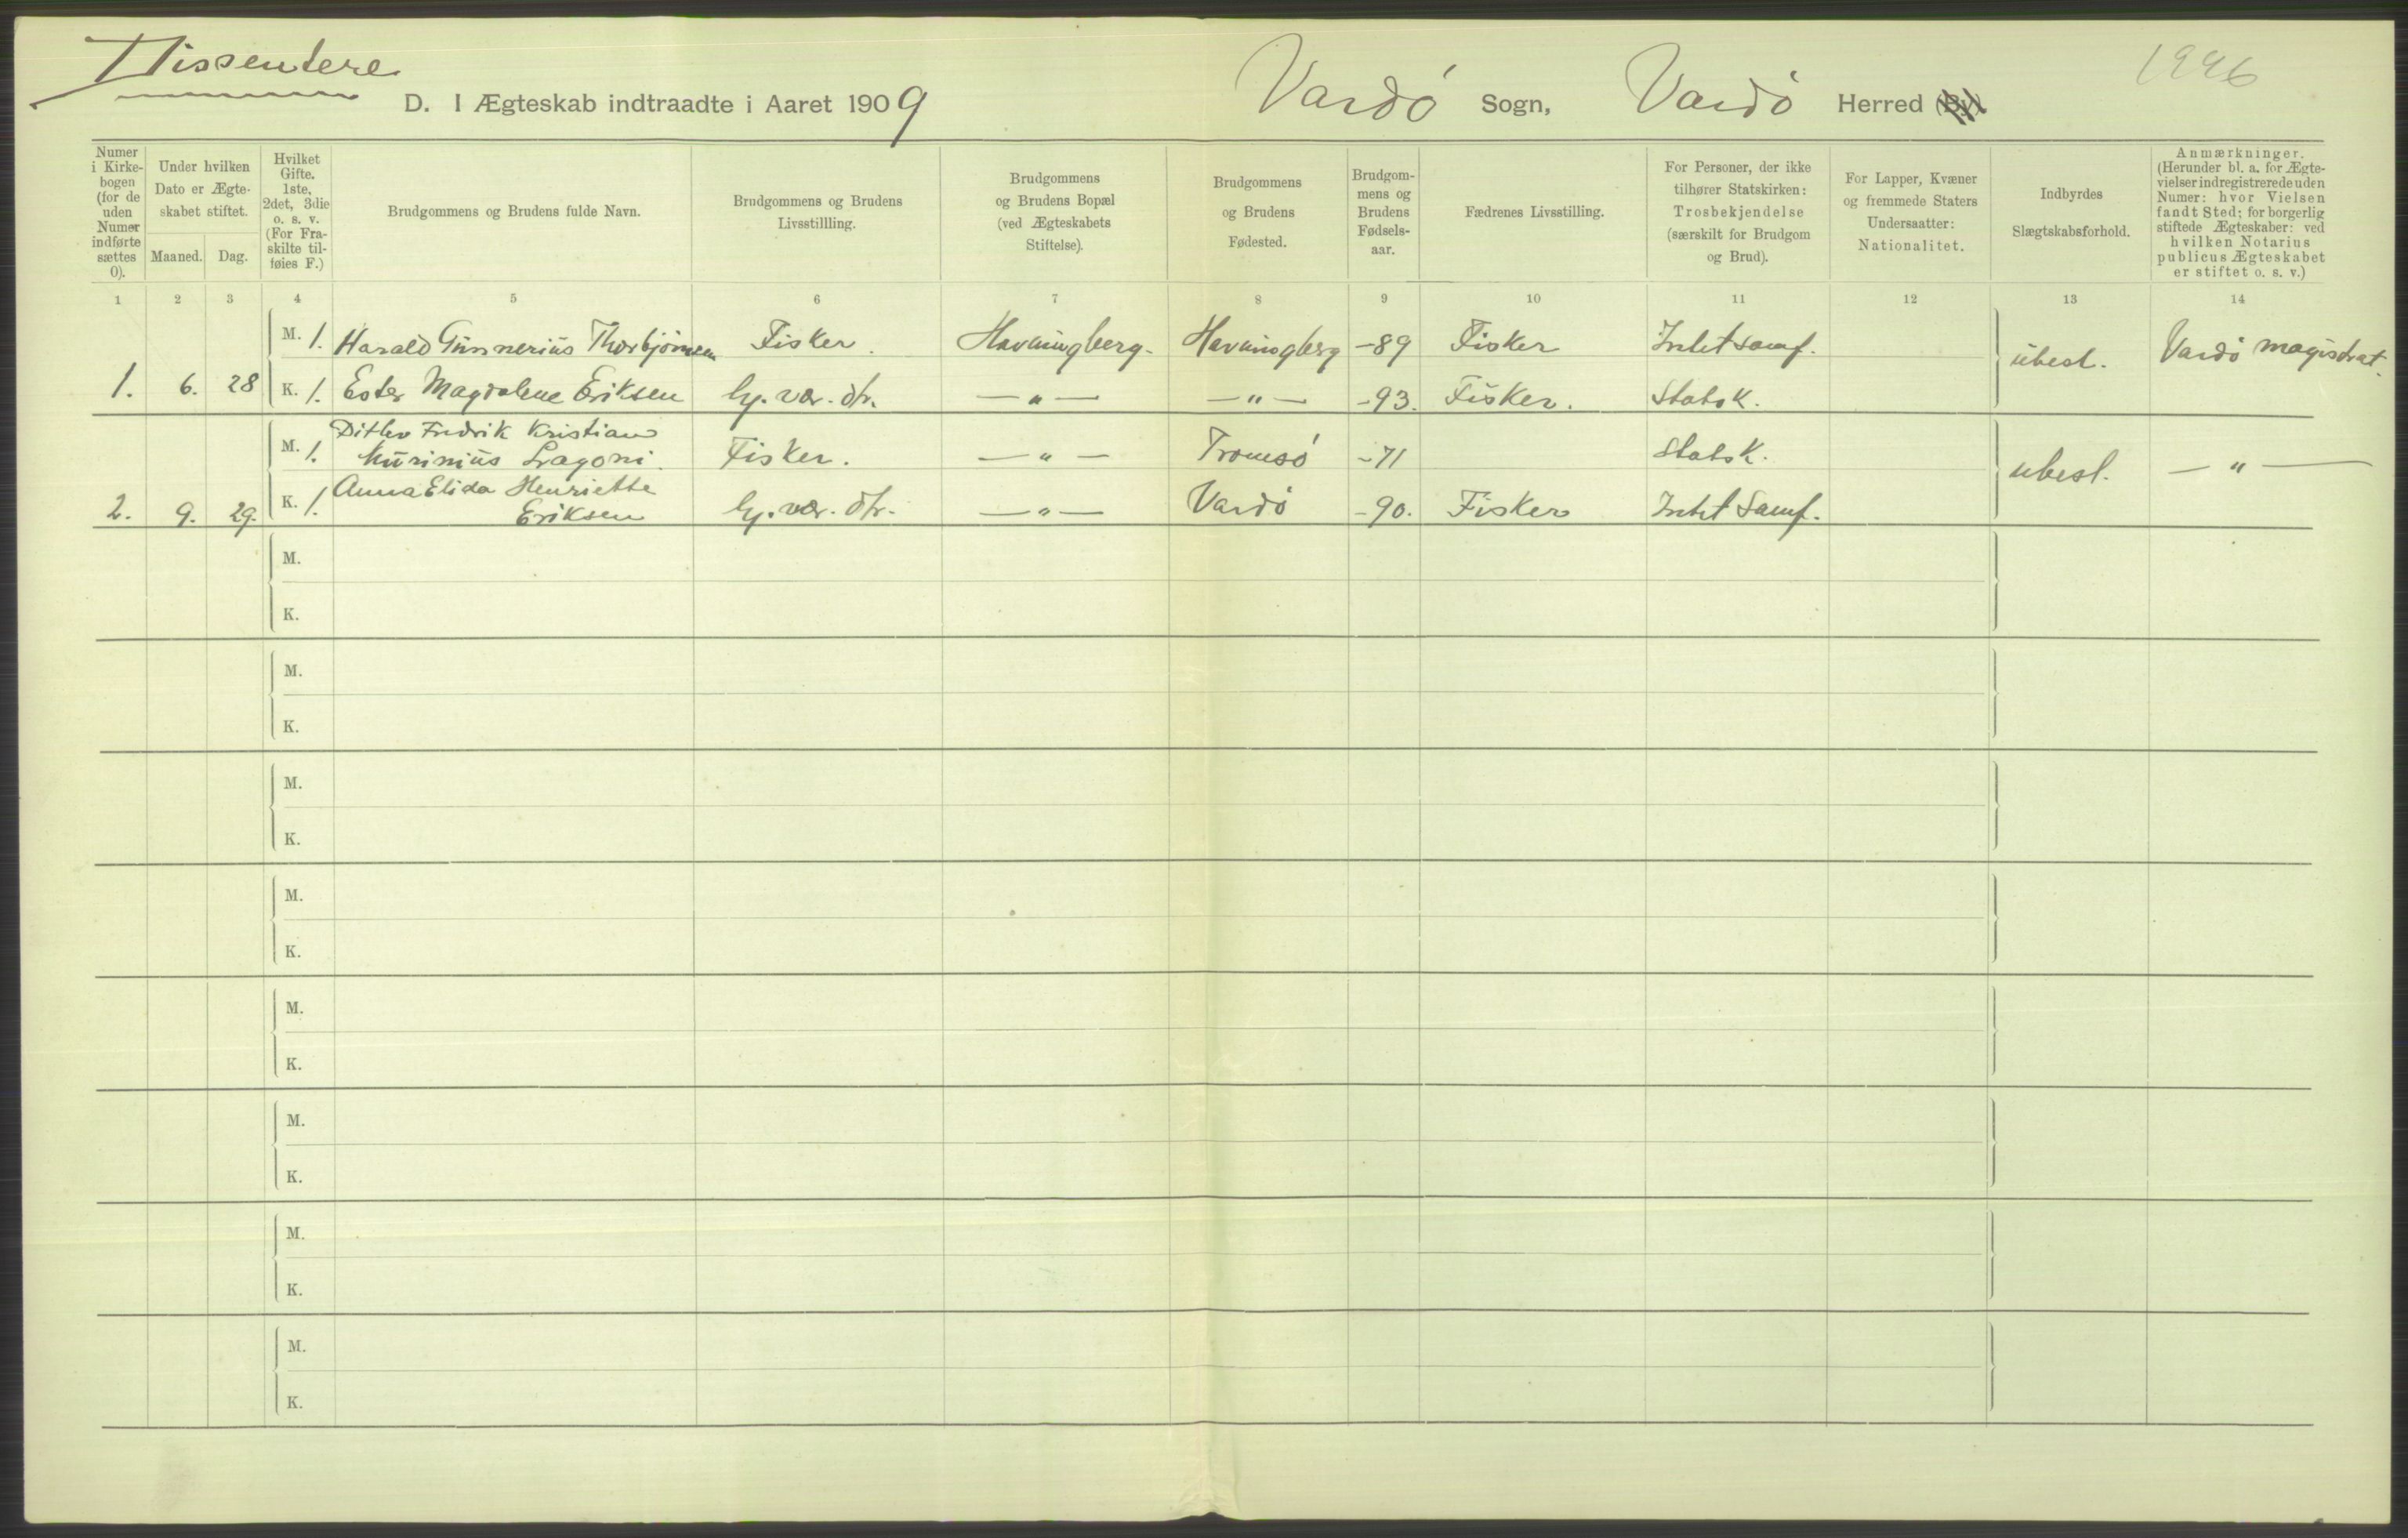 Dissentere
1996
D. I Ægteskab indtraadte i Aaret 1909 Vardö Sogn, Vardö Herred (By)
Numer i Kirke-bogen (for de uden Numer indførte sættes 0).
Under hvilken Dato er Ægte-skabet stiftet.
Maaned. Dag.
Hvilket Gifte. 1ste, 2det, 3die o. s. v. (For Fra-skilte til-føies F.)
Brudgommens og Brudens fulde Navn.
Brudgommens og Brudens Livsstillling.
Brudgommens og Brudens Bopæl (ved Ægteskabets Stiftelse).
Brudgommens og Brudens Fødested.
Brudgom-mens og Brudens Fødsels-aar.
Fædrenes Livsstilling.
For Personer, der ikke tilhører Statskirken: Trosbekjendelse (særskilt for Brudgom og Brud).
For Lapper, Kvæner og fremmede Staters Undersaatter: Nationalitet.
Indbyrdes Slægtskabsforhold.
Anmærkninger. (Herunder bl. a. for Ægte-vielser indregistrerede uden Numer: hvor Vielsen fandt Sted; for borgerlig stiftede Ægteskaber: ved hvilken Notarius publicus Ægteskabet er stiftet o. s. v.)
1 2 3 4 5 6 7 8 9 10 11 12 13 14
M. 1. Harald Gunnerius Thorbjörnsen Fisker. Havningberg. Havningberg -89 Fisker Intet samf. ubesl. Vardö magistrat.
1. 6. 28 K. 1. Ester Magdalene Eriksen hj. vær. dtr. — " — — " — -93. Fisker. Statsk.
M. 1. Ditlev Fredrik Kristian
Kurinius Lagoni. Fisker. — " — Tromsö -71 Statsk. ubesl. — " —
K. 1. Anna Elida Henriette
2. 9. 29. Eriksen hj. vær. dtr. — " — Vardö -90. Fisker Intet Samf.
M.
K.
M.
K.
M.
K.
M.
K.
M.
K.
M.
K.
M.
K.
M.
K.